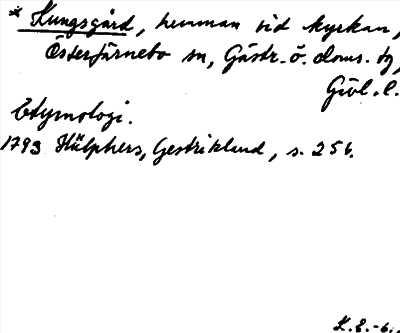 * Kungsgård, hemman vid kyrkan,
Österfärnebo sn, Gästr. ö. doms. tg,
Gävl. l.
Etymologi.
1793 Hülphers, Gestrikland, s. 256.
K. E.-6.